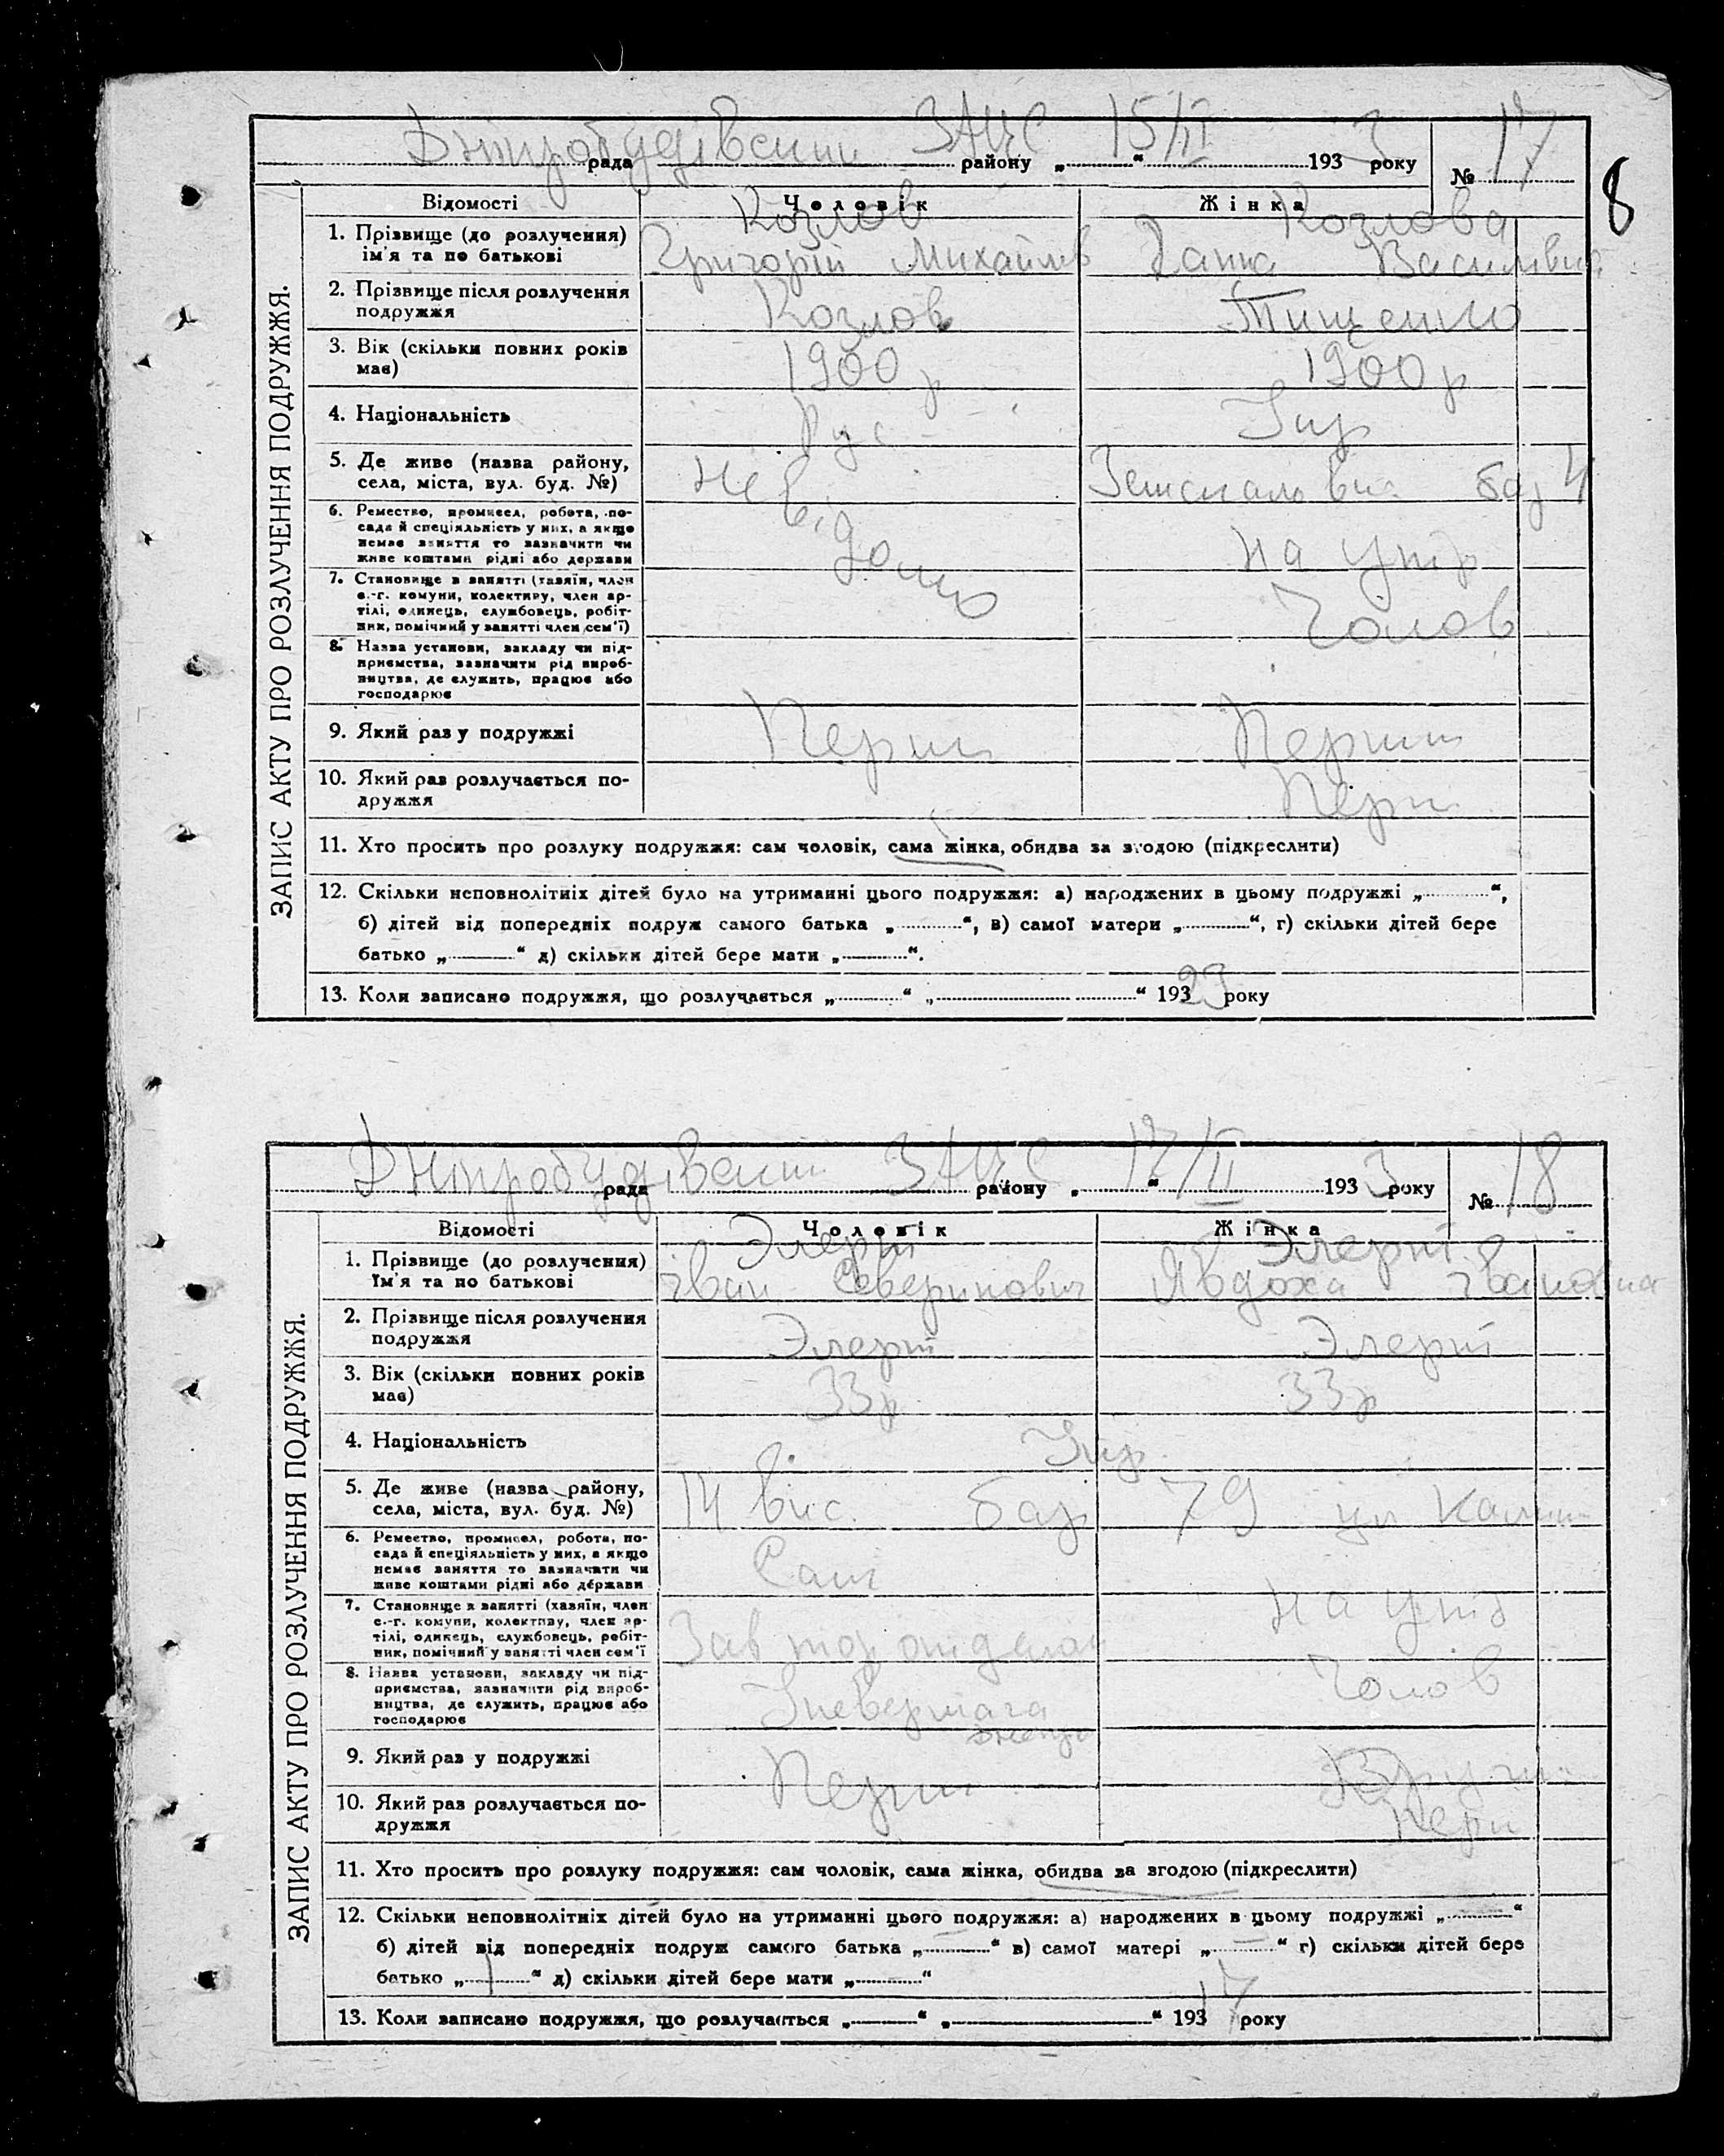 Дніпробудівський ЗАЦС 15/II
рада району „ “ 1933 року № 17
8
ЗАПИС АКТУ ПРО РОЗЛУЧЕННЯ ПОДРУЖЖЯ.
Відомості Чоловік Жінка
Козлов Козлова
1. Прізвище (до розлучення) ім'я та по батькові Григорій Михайлов Ганна Василівна
2. Прізвище після розлучення подружжя Козлов Тищенко
3. Вік (скільки повних років має) 1900 р 1900 р
4. Національність Рус Укр
5. Де живе (назва району, села, міста, вул. буд. №) Не бар 4
6. Ремество, промисел, робота, посада й спеціяльність у них, а якщо немає заняття то зазначити чи живе коштами рідні або держави відомо на утр
7. Становище в занятті (хазяїн, член с.-г. комуни, колективу, член артілі, одинець, службовець, робітник, помічний у занятті член сем'ї) Чолов
8. Назва установи, закладу чи підприємства, зазначити рід виробництва, де служить, працює або господарює
9. Який раз у подружжі Перш Перший
10. Який раз розлучається подружжя Перш
11. Хто просить про розлуку подружжя: сам чоловік, сама жінка, обидва за згодою (підкреслити)
12. Скільки неповнолітніх дітей було на утриманні цього подружжя: а) народжених в цьому подружжі „ “,
б) дітей від попередніх подруж самого батька „ “, в) самої матери „ “, г) скільки дітей бере
батько „ “ д) скільки дітей бере мати „ “.
13. Коли записано подружжя, що розлучається „ “ „ “ 193 23 року
Дніпробудівський ЗАЦС 17/II
рада району „ “ 1933 року № 18
ЗАПИС АКТУ ПРО РОЗЛУЧЕННЯ ПОДРУЖЖЯ.
Відомості Чоловік Жінка
Элерт Элерт
1. Прізвище (до розлучення) їм'я та по батькові Іван Северинович Явдоха Івановна
2. Прізвище після розлучення подружжя Элерт Элерт
3. Вік (скільки повних років має) 33р 33р
4. Національність Укр
5. Де живе (назва району, села, міста, вул. буд. №) 14 вис. бар 79
6. Ремество, промисел, робота, посада й спеціяльність у них, а якщо немає заняття то зазначати чи живе коштами рідні або держави
7. Становище в занятті (хазяїн, член с.-г. комуни, колективу, член артілі, одинець, службовець, робітник, помічний у занятті член сем'ї Зав на утр
8. Назва установи, закладу чи підприємства, зазначити рід виробництва, де служить, працює або господарює Універмага Чолов
9. Який раз у подружжі Перш
10. Який раз розлучається подружжя Перш
11. Хто просить про розлуку подружжя: сам чоловік, сама жінка, обидва за згодою (підкреслити)
12. Скільки неповнолітніх дітей було на утриманні цього подружжя: а) народжених в цьому подружжі „ “
б) дітей від попередніх подруж самого батька „ “ в) самої матері „ “ г) скільки дітей бере
батько „ 1 “ д) скільки дітей бере мати „ “
13. Коли записано подружжя, що розлучається „ “ „ “ 193 року